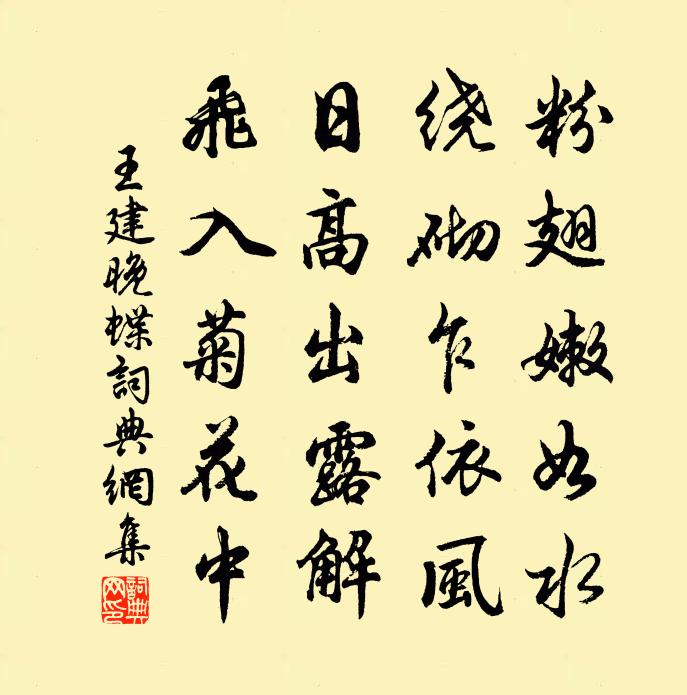 粉翅嫩如水
绕砌乍依風
日高出露解
飛入菊花中
王建晚蝶詞典網集
詞典網印